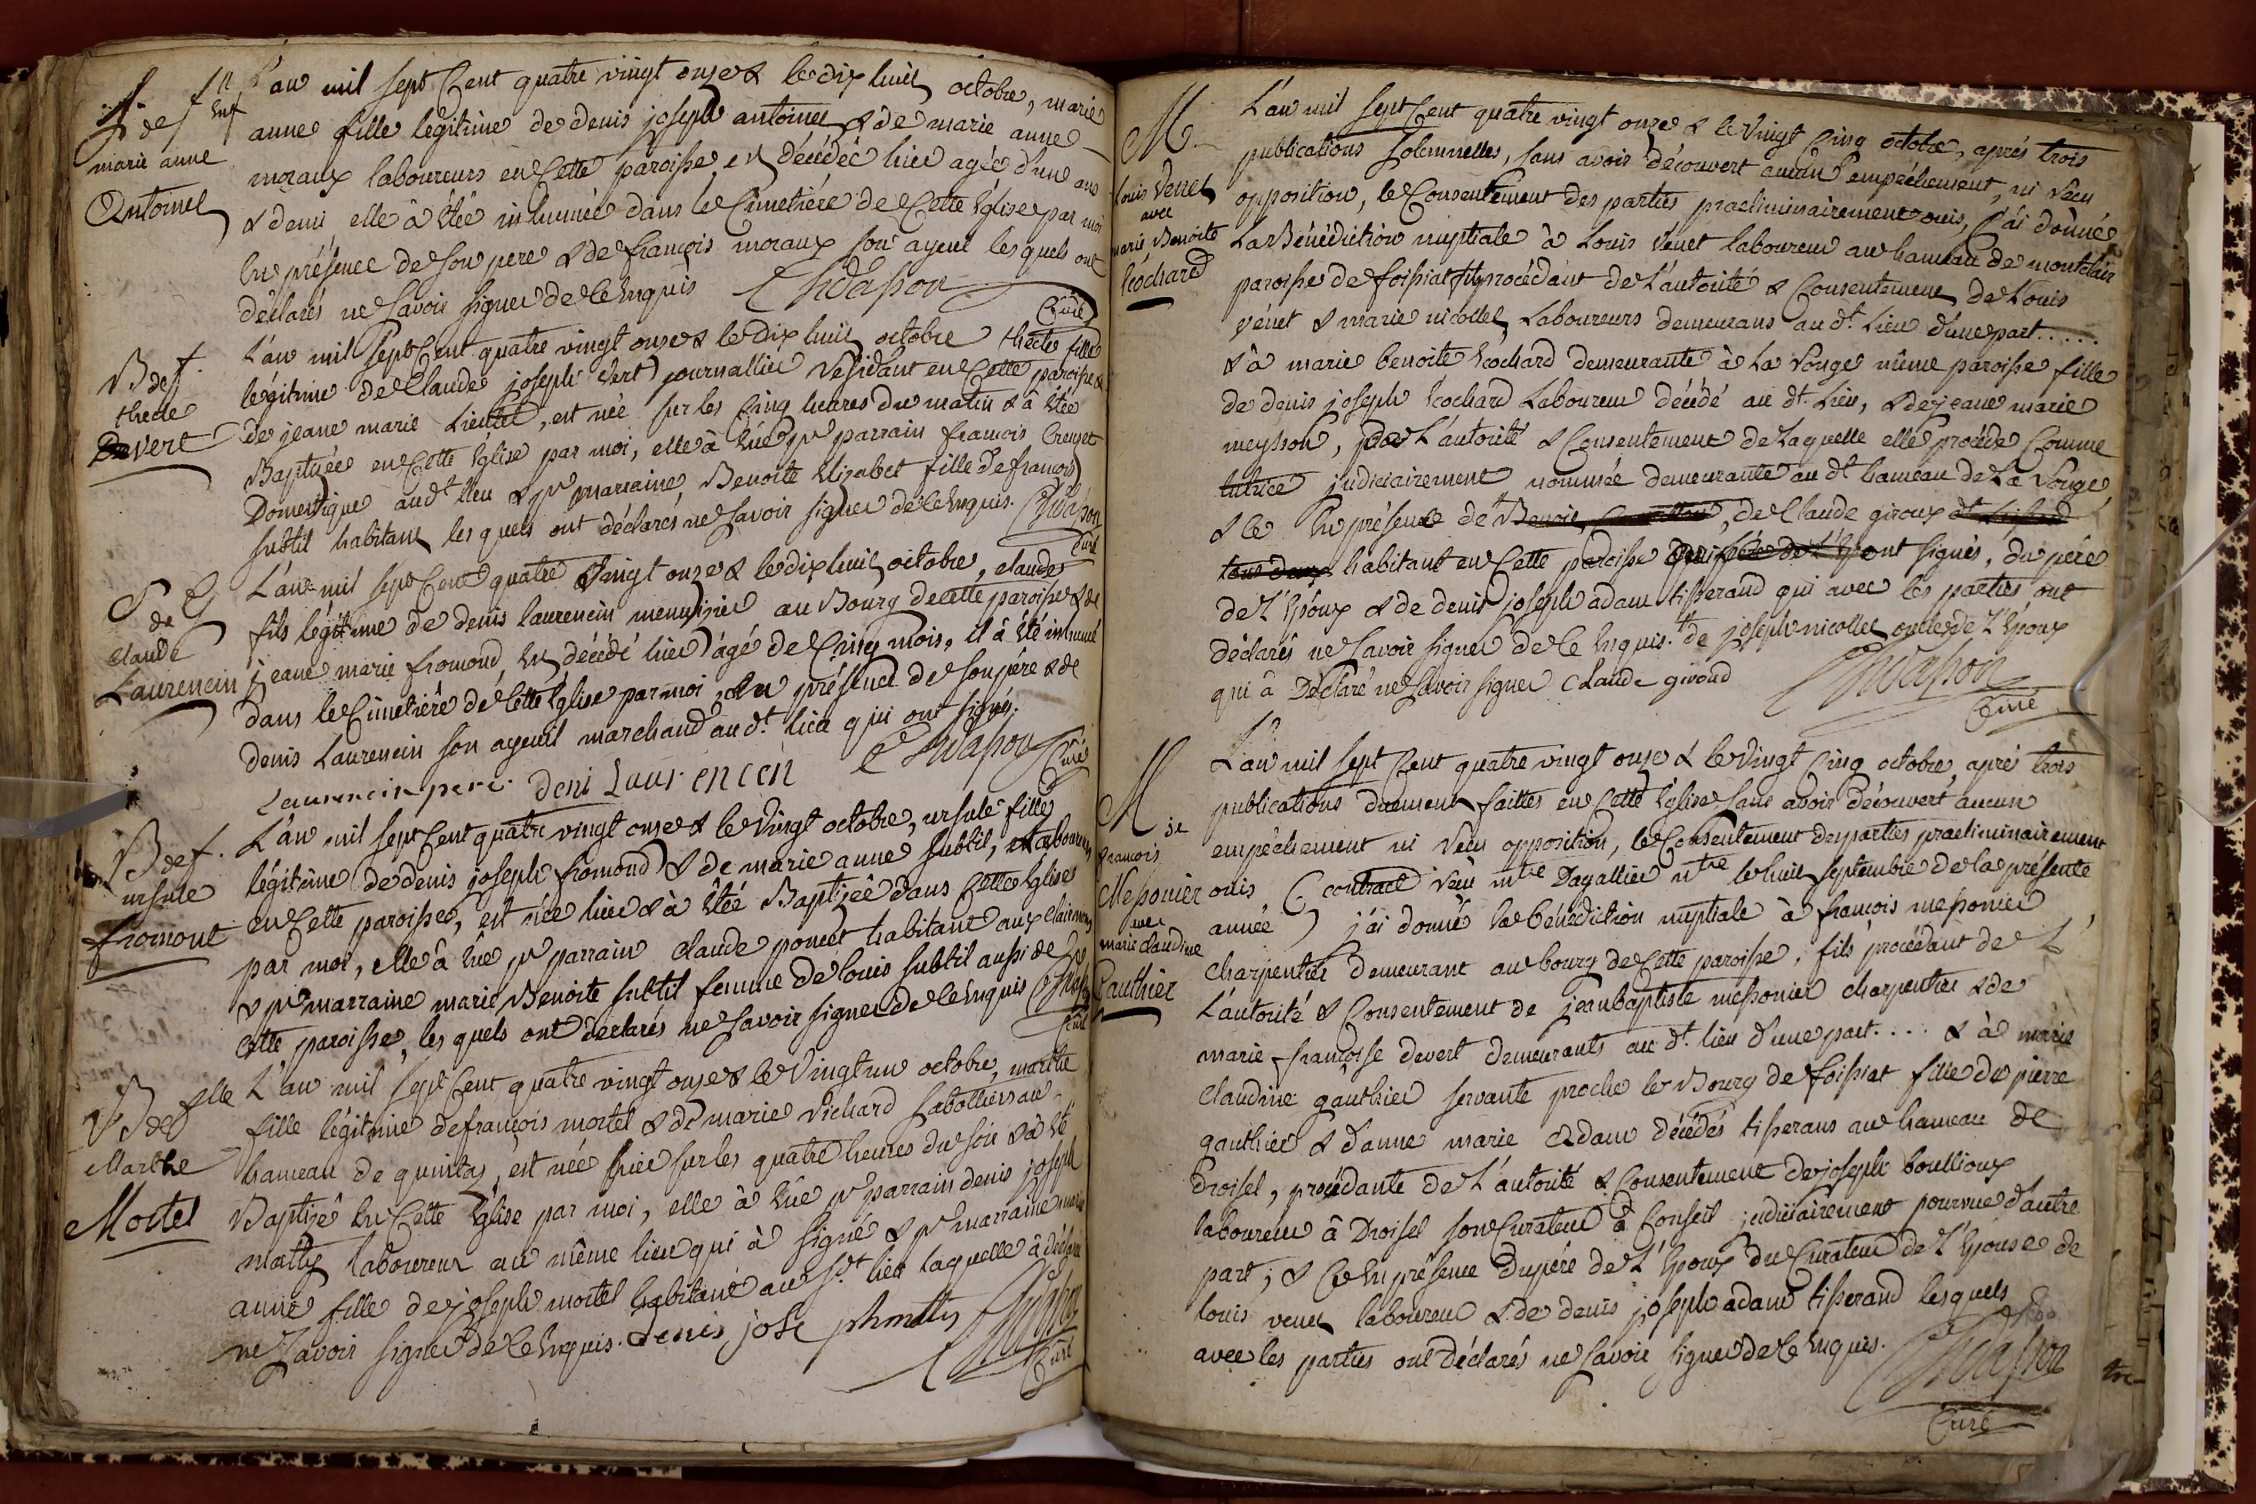 S de f.lle Enf
marie anne
Antoinet
L'an mil sept Cent quatre vingt onze & le dix huit octobre, marie
anne fille légitime de denis joseph antoinet & de marie anne
moraux laboureurs en Cette paroisse, est décédée hier agée d'un ans
& demi elle à Etée inhumée dans le Cimetière de Cette Eglise par moi
En présence de son pere & de françois moraux son ayeul les quels ont
déclarés ne Savoir signer de Ce Enquis Chvasson
Curé
B de f.
thecle
Devert
L'an mil sept Cent quatre vingt onze & le dix huit octobre thecle fille
légitime de Claude joseph Vert journallier résidant en Cette paroisse &
de jeane marie Lientet, est née sur les Cinq heures du matin & à Etée
Baptizée en Cette Eglise par moi, elle à Eüe pr parrain francois Creuzet
Domestique audt lieu & pr marraine Benoite Elizabet fille de francois
subtil habitant les quels ont déclarés ne Savoir signer de Ce Enquis. Chvasson
Curé
S de G
de
claude
Laurencin
L'an mil sept Cent quatre Vingt onze & le dix huit octobre, claude
fils légitime de denis laurencin menuizier au Bourg de cette paroisse & de
jeane marie fromond, Est décédé hier agé de Cinq mois, il à été inhumé
dans le Cimetière de Cette Eglise par moi, En présence de son père & de
denis Laurencin son ayeuil marchand au dt. lieu qui ont signés.
Laurencin pere. deni Laurencen Chvasson Curé
B de f.
ursule
fromont
L'an mil sept Cent quatre vingt onze & le Vingt octobre, ursule fille
légitime de denis joseph fromond & de marie anne subtil, Laboureurs
en Cette paroisse, est née hier & à Etée Baptizée dans Cette Eglise
par moi, elle à Eüe pr parrain claude poncet habitant aux clairmonts
& pr marraine marie Benoite subtil femme de louis subtil aussi de
Cette paroisse, les quels ont déclarés ne Savoir signer de Ce Enquis Chvasson
Curé
B de f.elle
Marthe
Mortel
L'an mil sept Cent quatre vingt onze & le Vingt un octobre, marthe
fille légitime de francois mortel & de marie Vichard sabottiers au
hameau de quintas, est née hier sur les quatre heures du soir & à Eté
Baptizé En Cette Eglise par moi, elle à Eüe pr parrain denis joseph
matty laboureur au même lieu qui à signé & pr marraine marie
anne fille de joseph mortel habitant au sdt. lieu laquelle à déclaré
ne Savoir signer de Ce Enquis. denis jose ph matty Chvasson
Curé
M.
Louis Venet
avec
marie Benoite
Cochard
L'an mil sept Cent quatre vingt onze & le Vingt Cinq octobre, après trois
publications solemnelles, sans avoir découvert aucun empéchement, ni Vëeu
opposition, le Consentement des parties praeliminairement ouis, j'ai donnée
La Bénédiction nuptiale à Louis Venet laboureur au hameau de montclair
paroisse de foissiat fils procédant de L'autorité & Consentement de Louis
vénet & marie nicollet, Laboureurs demeurans au dt. lieu d'une part.....
& à marie benoite Cochard demeurante à La Vouge même paroisse fille
de denis joseph Cochard Laboureur décédé au dt. lieu, & de jeane marie
meysson, de L'autorité & Consentement de Laquelle elle procède Comme
tutrice judiciairement nommée demeurante au dt hameau de La Vouge
& Ce En présence de Benoit, de Claude giroux
tous deux habitant en Cette paroisse ont signés, du père
de L'Epoux & de denis joseph adam tisserand qui avec les parties ont
déclarés ne Savoir signer de Ce Enquis. & de joseph nicollet oncle de L'Epoux
qui à Déclaré ne Savoir signer Claude giroud Chvasson
Curé
M de
francois
Messonier
avec
marie claudine
Gauthier
L'an mil sept Cent quatre vingt onze & le Vingt Cinq octobre, après trois
publications duement faittes en Cette Eglise sans avoir découvert aucun
empêchement ni Vëeu opposition, le Consentement des parties praeliminairement
ouis, (contract reçu mtre Dagallier ntre le huit septembre de la présente
année) j'ai donné la bénédiction nuptiale à francois messonier
charpentier demeurant au bourg de Cette paroisse, fils procédant de L'
L'autorité & Consentement de jean baptiste messonier charpentier & de
marie françoise devert demeurants au dt. lieu d'une part.... & à marie
claudine gauthier servante proche le Bourg de foissiat fille de pierre
gauthier & d'anne marie Adam décédés tisserans au hameau de
Droisel, procédante de L'autorité & Consentement de joseph bouillioux
laboureur à Droisel son Curateur à Conseil judiciairement pourvue d'autre
part ; & Ce En présence du père de L'Epoux du Curateur de L'Epouse de
louis venet laboureur & de denis joseph adam tisserand lesquels
avec les parties ont déclarés ne Savoir signer de Ce Enquis.
Chvasson
Curé